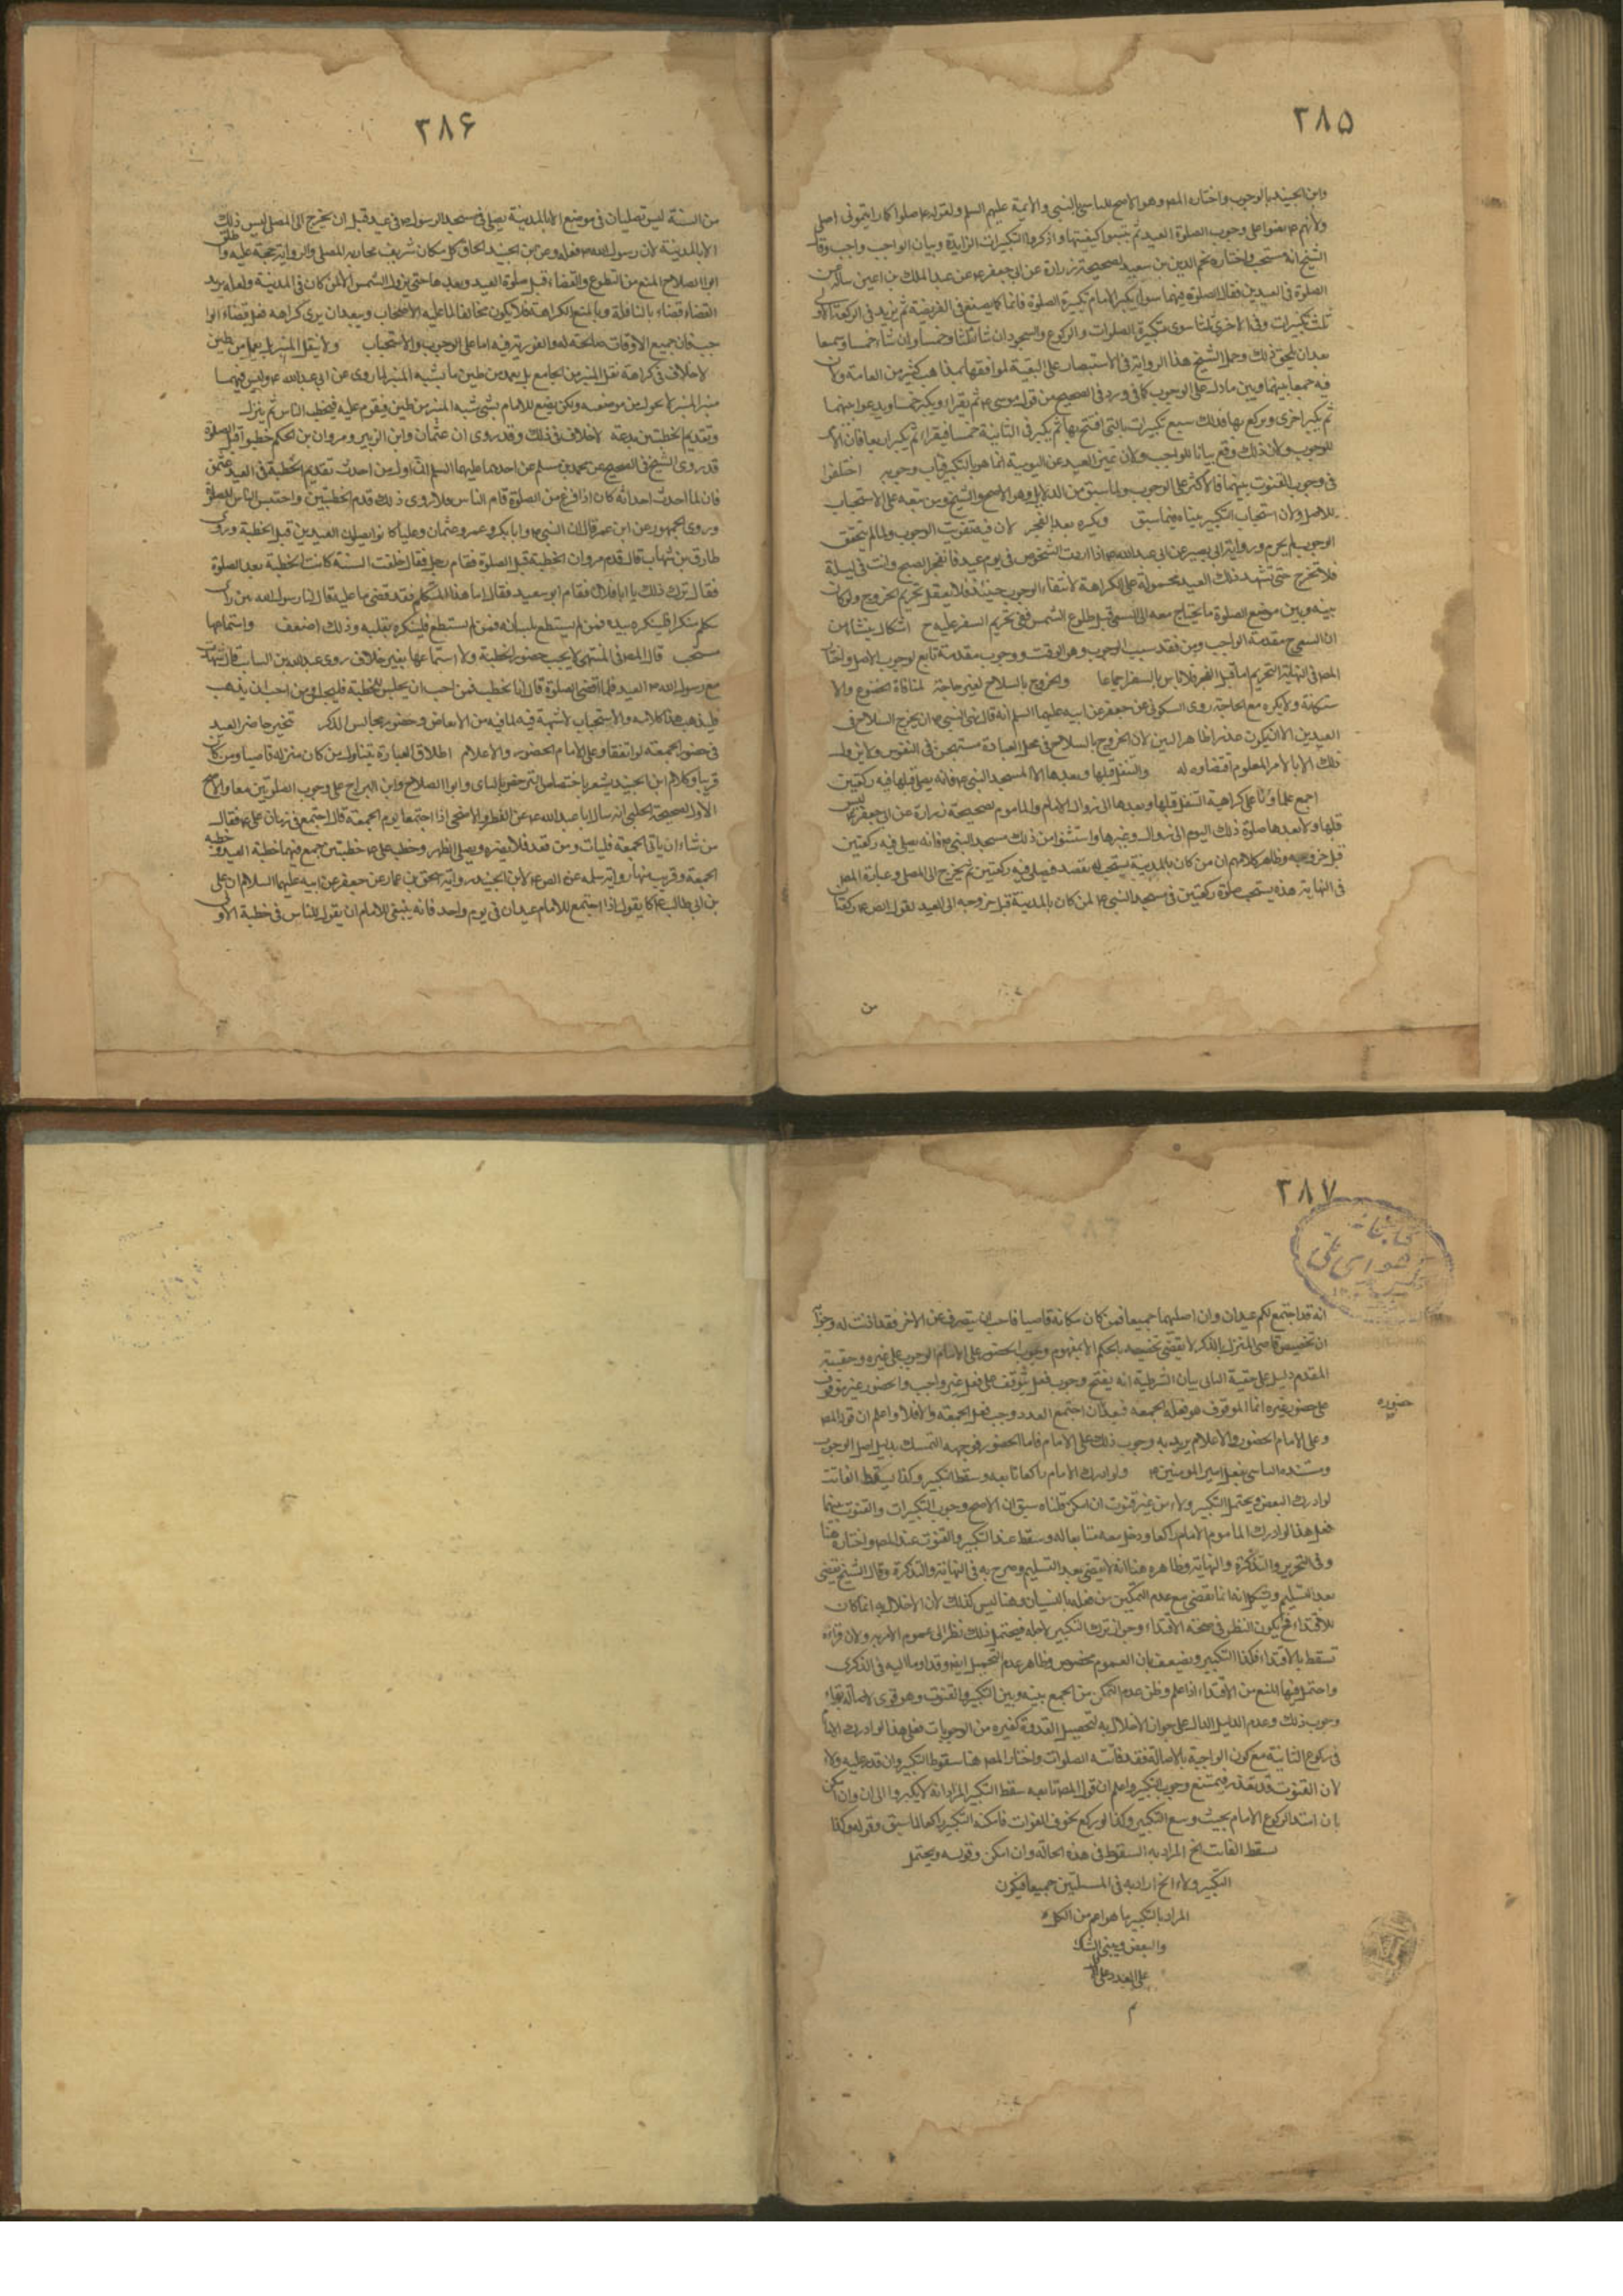 ٢٨٥
وابن الجنيد بالوجوب واختاره المصـ وهو الاصح للتاسي بالنبي والائمة عليهم السلم ولقوله ص صلوا كما رايتموني اصلي
ولانهم نصوا على وجوب الصلوة العيد ثم بينوا كيفيتها واذكروا التكبيرات الزايدة وبيان الواجب واجب وقال
الشيخ انه مستحب واختاره نجم الدين بن سعيد لصحيحة زرارة عن ابي جعفر ع ان عبد الملك بن اعين ساله عن
الصلوة في العيدين فقال الصلوة فيهما سواء يكبر الامام تكبيرة الصلوة قائما كما يصنع في الفريضة ثم يزيد في الركعة الاولى
ثلث تكبيرات وفي الاخرى ثلثا سوى تكبيرة الصلوات والركوع والسجود ان شاء ثلثا وخمسا وان شاء خمسا وسبعا
بعد ان يلحق ذلك وحمل الشيخ هذا الرواية في الاستبصار على التقية لموافقتها لمذاهب كثير من العامة ولان
فيه جمعا بينهما وبين ما دل على الوجوب كما في ورد في الصحيح من قول موسى ع ثم يقراء ويكبر خمسا ويدعوا بينهما
ثم يكبر اخرى ويركع بها فذلك سبع تكبيرات بالتي افتتح بها ثم يكبر في الثانية خمسا فيقراء ثم يكبر اربعا فان الامر
للوجوب ولان ذلك وقع بيانا للواجب ولان تميز العيد عن اليومية انما هو بالتكبير فيجب وجوبه اختلفوا
في وجوب القنوت بينهما فالاكثر على الوجوب ولما سبق من الدلايل وهو الاصح والشيخ ومن تبعه على الاستحباب
للاصل ولان استحباب التكبير بيناه فيما سبق ويكره بعد الفجر لان فيه تفويت الوجوب ولما لم يتحقق
الوجوب لم يحرم ورواية ابي بصير عن ابي عبد الله ع اذا اردت الشخوص في يوم عيد فانفجر الصبح وانت في ليلة
فلا تخرج حتى تشهد ذلك العيد محمولة على الكراهة لانتفاء الوجوب حينئذ فلا يعقل تحريم الخروج ولو كان
بينه وبين موضع الصلوة ما يحتاج معه الى السعي قبل طلوع الشمس ففي تحريم السفر عليه ح اشكال ينشا من
ان السعي ح مقدمة الواجب ومن فقد سبب الوجوب وهو الوقت ووجوب مقدمته تابع لوجوب الاصل واختار
المصـ في النهاية التحريم اما قبل الفجر فلا باس بالسفر اجماعا والخروج بالسلاح لغير حاجة لمنافاة الخضوع والا
ستكانة ولا يكره مع الحاجة روى السكوني عن جعفر عن ابيه عليهما السلم انه قال نهى النبي ص ان يخرج السلاح في
العيدين الا ان يكون عدوا ظاهرا لان الخروج بالسلاح في محل العبادة مستهجن في النفوس
والتنفل قبلها وبعدها الا لمسجد النبي ص فانه يصلي قبلها فيه ركعتين
اجمع علماؤنا على كراهية التنفل قبلها وبعدها الى زوال للامام والماموم لصحيحة زرارة عن ابي جعفر ع ليس
قبلها ولا بعدها صلوة ذلك اليوم الى زوال وغيرها واستثنوا من ذلك مسجد النبي ص فانه يصلي فيه ركعتين
قبل خروجه وظاهر كلامهم ان من كان بالمدينة يستحب له يقصده فيصلي فيه ركعتين ثم يخرج الى المصلى وعبارة المصـ
في النهاية هذه يستحب صلوة ركعتين في مسجد النبي ص لمن كان بالمدينة قبل خروجه الى العيد لقول الصـ ع ركعتان
من
٢٨۶
من السنة ليس تصليان في موضع الا بالمدينة يصلي في مسجد الرسول ص في عيد قبل ان يخرج الى المصلى ليس ذلك
الا بالمدينة لان رسول الله ص فعله وعن ابن الجنيد الحاق كل مكان شريف يجتاز به المصلي والرواية حجة عليه واطلق
ابو الصلاح المنع من التطوع والقضاء قبل صلوة العيد وبعدها حتى تزول الشمس الا لمن كان في المدينة ولعله يريد
القضاء قضاء بالنافلة وبالمنع الكراهة فلا يكون مخالفا لما عليه الاصحاب ويبعد ان يرى كراهة فعل قضاء الوا
جب فان جميع الاوقات صالحة له والفورية فيه اما على الوجوب والاستحباب ولا ينقل المنبر بل يعمل من طين
لا خلاف في كراهة نقل المنبر من الجامع بل يعمد من طين ما يشبه المنبر لما روي عن ابي عبد الله ع وليس فيهما
منبر المنبر لا يحول من موضعه ولكن يصنع للامام شي شبه المنبر من طين فيقوم عليه فيخطب الناس ثم ينزل
وتقديم الخطبتين بدعة لا خلاف في ذلك وقد روي ان عثمان وابن الزبير ومروان بن الحكم خطبوا قبل الصلوة
قد روى الشيخ في الصحيح عن محمد بن مسلم عن احدهما عليهما السلم ان اول من احدث تقديم الخطبة في العيد عثمن
فان لما احدث احداثه كان اذا فرغ من الصلوة قام الناس فلما رأى ذلك قدم الخطبتين واحتبس الناس للصلوة
وروى الجمهور عن ابن عمر قال ان النبي ص وابا بكر وعمر وعثمان وعليا كانوا يصلون العيدين قبل الخطبة وروى
طارق بن شهاب قال قدم مروان الخطبة قبل الصلوة فقام رجل فقال خلفت السنة كانت الخطبة بعد الصلوة
فقال ترك ذلك يا ابا فلان فقام ابو سعيد فقال اما هذا المتكلم فقد قضى ما عليه قال لنا رسول الله من راى
منكم منكرا فلينكره بيده فمن لم يستطع بلسانه فمن لم يستطع فلينكره بقلبه وذلك اضعف واستماعها
مستحب قال المصـ في المنتهى لا يجب حضور الخطبة ولا استماعها بغير خلاف روى عبد الله بن السائب قال شهدت
مع رسول الله ص العيد فلما قضى الصلوة قال انا نخطب فمن احب ان يجلس للخطبة فليجلس ومن احب ان يذهب
فليذهب هذا كلامه والاستحباب لا شبهة فيه لما فيه من الاتعاض وحضور مجالس الذكر تخير حاضر العيد
في حضور الجمعة لو اتفقا وعلى الامام الحضور والاعلام اطلاق العبارة يتناول من كان منزله قاصيا ومن كان
قريبا وكلام ابن الجنيد يشعر باختصاص الترخص بالنائي وابوا الصلاح وابن البراج على وجوب الصلوتين معا والاصح
الاول لصحيحة الحلبي انه سال ابا عبد الله ع عن الفطر والاضحى اذا اجتمعا يوم الجمعة قال اجتمع في زمان علي ع فقال
من شاء ان ياتي الجمعة فليات ومن قعد فلا يضره ويصلي الظهر وخطب علي ع خطبتين جمع فيهما خطبة العيد وخطبة
الجمعة وقريب منها رواية سلمه عن الصـ ع لابن الجنيد رواية اسحق بن عمار عن جعفر عن ابيه عليهما السلام ان علي
بن ابي طالب ع كان يقول اذا اجتمع للامام عيدان في يوم واحد فانه ينبغي للامام ان يقول للناس في خطبة الاولى
٢٨٧
انه قد اجتمع لكم عيدان وان اصليهما جميعا فمن كان مكانه قاصيا فاحب ان ينصرف عن الاخر فقد اذنت له وجوابه
ان تخصيص قاصي المنزل بالذكر لا يقتضي تخصيصه بالحكم الا بمفهوم وجوب الحضور على الامام الوجوب على غيره وحقيقة
المقدم دليل على حقية التالي بيان الشرطية انه يقبح وجوب فعل يتوقف على فعل غير واجب والحضور غير موقوف
على حضور غيره انما الموقوف هو فعل الجمعة فح ان اجتمع العدد وجب فعل الجمعة والا فلا واعلم ان قول المصـ
حضوره
وعلى الامام الحضور والاعلام يريد به وجوب ذلك على الامام فاما الحضور فوجهه التمسك بدليل اصل الوجوب
ومستنده التاسي بفعل امير المومنين ع ولو ادرك الامام راكعا تابعه وسقط التكبير وكذا يسقط الفائت
لو ادرك البعض ويحتمل التكبير ولاء من غير قنوت ان امكن قلناه سبق ان الاصح وجوب التكبيرات والقنوت بينهما
فعلى هذا لو ادرك الماموم الامام راكعا ودخل معه متابعا له وسقط عنه التكبير والقنوت عند المصـ واختاره هنا
وفي التحرير والتذكرة والنهاية وظاهره هنا انه لا يقضي بعد التسليم وصرح به في النهاية والتذكرة وقال الشيخ يقضي
بعد التسليم ويشكل انه انما يقضي مع عدم التمكين من فعله بالنسيان وهنا ليس كذلك لان الاخلال به انما كان
للاقتداء فح يكون النظر في صحة الاقتداء وجواز ترك التكبير لاجله فيحتمل ذلك نظرا الى عموم الامر به ولان قراءة
تسقط بالاقتداء فكذا التكبير ويضعف بان العموم مخصوص وظاهر عدم التحمل ايضا وقد اوما اليه في الذكرى
واحتمل فيها المنع من الاقتداء اذا علم وظن عدم التمكن من الجمع بينه وبين التكبير والقنوت وهو قوي لاصالة بقاء
وجوب ذلك وعدم الدليل الدال على جواز الاخلال به لتحصيل القدوة كغيره من الوجوبات فعلى هذا لو ادرك الامام
في ركوع الثانية مع كون الواجبة بالاصالة فقد فاتته الصلوات واختار المصـ هنا سقوط التكبير وان قدر عليه ولاء
لان القنوت قد تعذر فيمتنع وجوب التكبير واعلم ان قول المصـ تابعه سقط التكبير المراد انه لا يكبر وان امكن
بان امتد الركوع الامام بحيث وسع التكبير وكذا لو ركع بخوف الفوات فامكنه التكبير راكعا لما سبق وقوله وكذا
سقط الفائت الخ المراد به السقوط في هذه الحالة وان امكن وقوله ويحتمل
التكبير ولاء الخ اراد به في المسئلتين جميعا فيكون
المراد بالتكبير ما هو اعم من الكل
والبعض ويبنى الشاك
على العدد وعلى
م